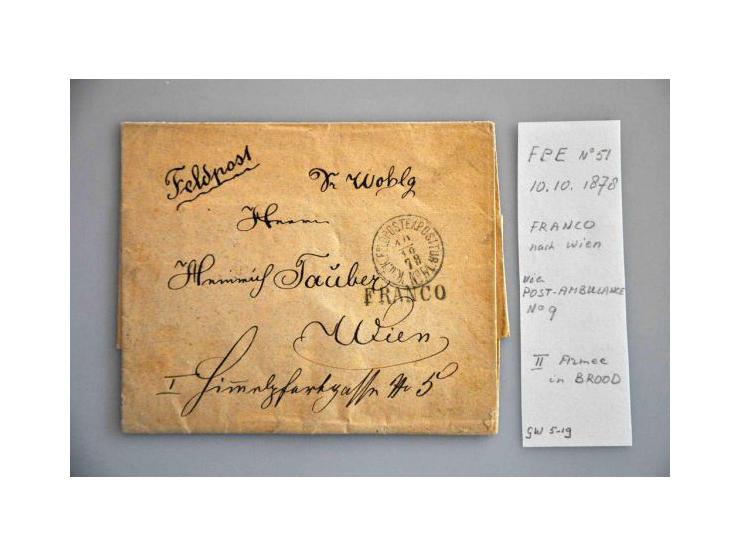 Feldpost
Sr Wohlg
Herrn
Heinrich Tauber
K.u.K. FELDPOSTEXPOSITUR
10
10
78
FRANCO
Wien
I Himmelpfortgasse No 5
FPE No 51
10.10.1878
FRANCO
nach Wien
via
POST-AMBULANCE
No 9
II Armee
in BROOD
GW 5-19